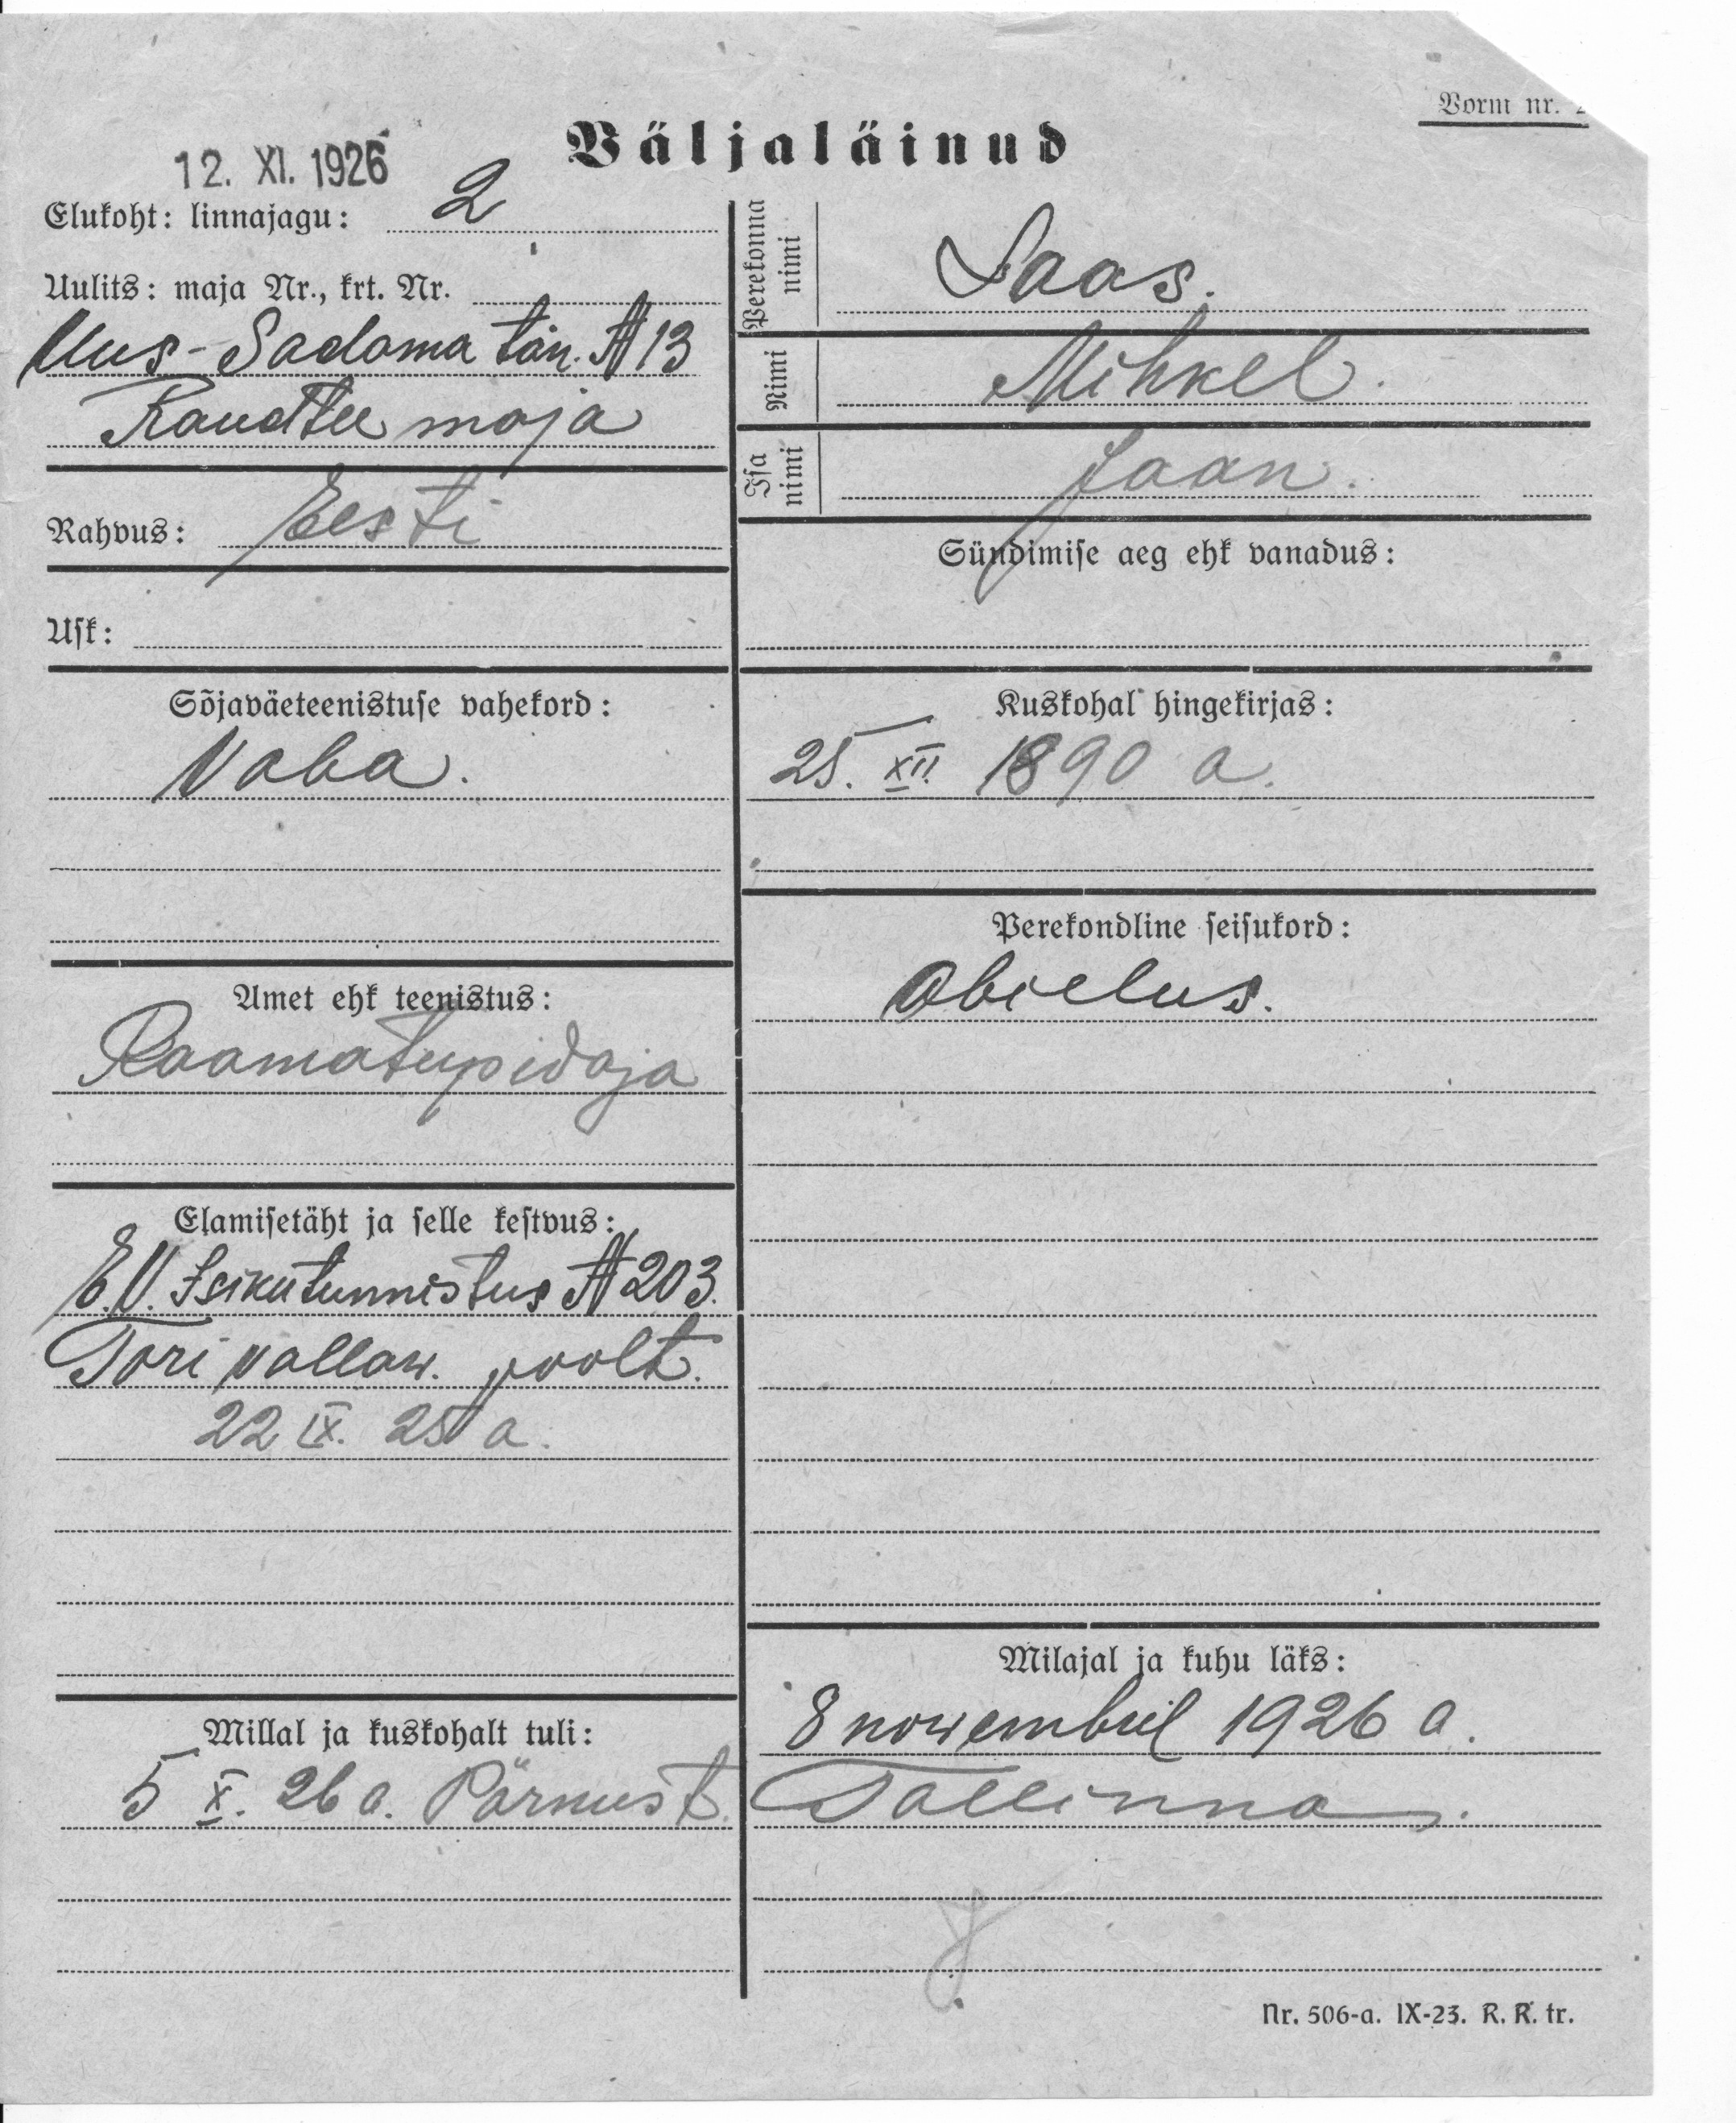 Vorm nr.
Väljaläinud
12. XI. 1926
Elukoht: linnajagu: 2
Uulits: maja Nr., krt. Nr.
Uus-Sadama tän. № 13
Raudtee maja
Rahvus: Eesti
Usk:
Sõjaväeteenistuse vahekord:
Vaba.
Amet ehk teenistus:
Raamatupidaja
Elamisetäht ja selle kestvus:
E.V. Isikutunnistus № 203.
Tori vallaw. poolt.
22 IX. 25 a.
Millal ja kuskohalt tuli:
5 X. 26 a. Pärnust.
Perekonna nimi
Saas.
Nimi
Mihkel.
Isa nimi
Jaan.
Sündimise aeg ehk vanadus:
Kuskohal hingekirjas:
25. XII. 1890 a.
Perekondline seisukord:
Abielus.
Milajal ja kuhu läks:
8 nowembril 1926 a.
Tallinna.
Nr. 506-a. IX-23. R. R. tr.